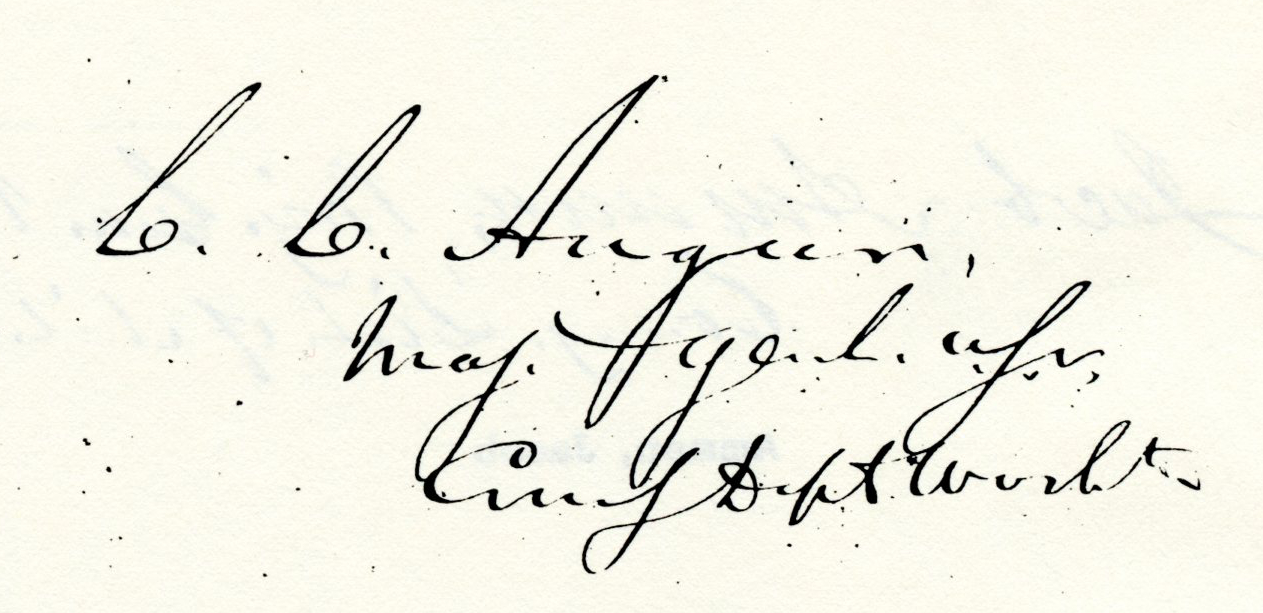 C. C. Augur,
Maj. Genl. U.S.V.,
Comg Dept Washtn